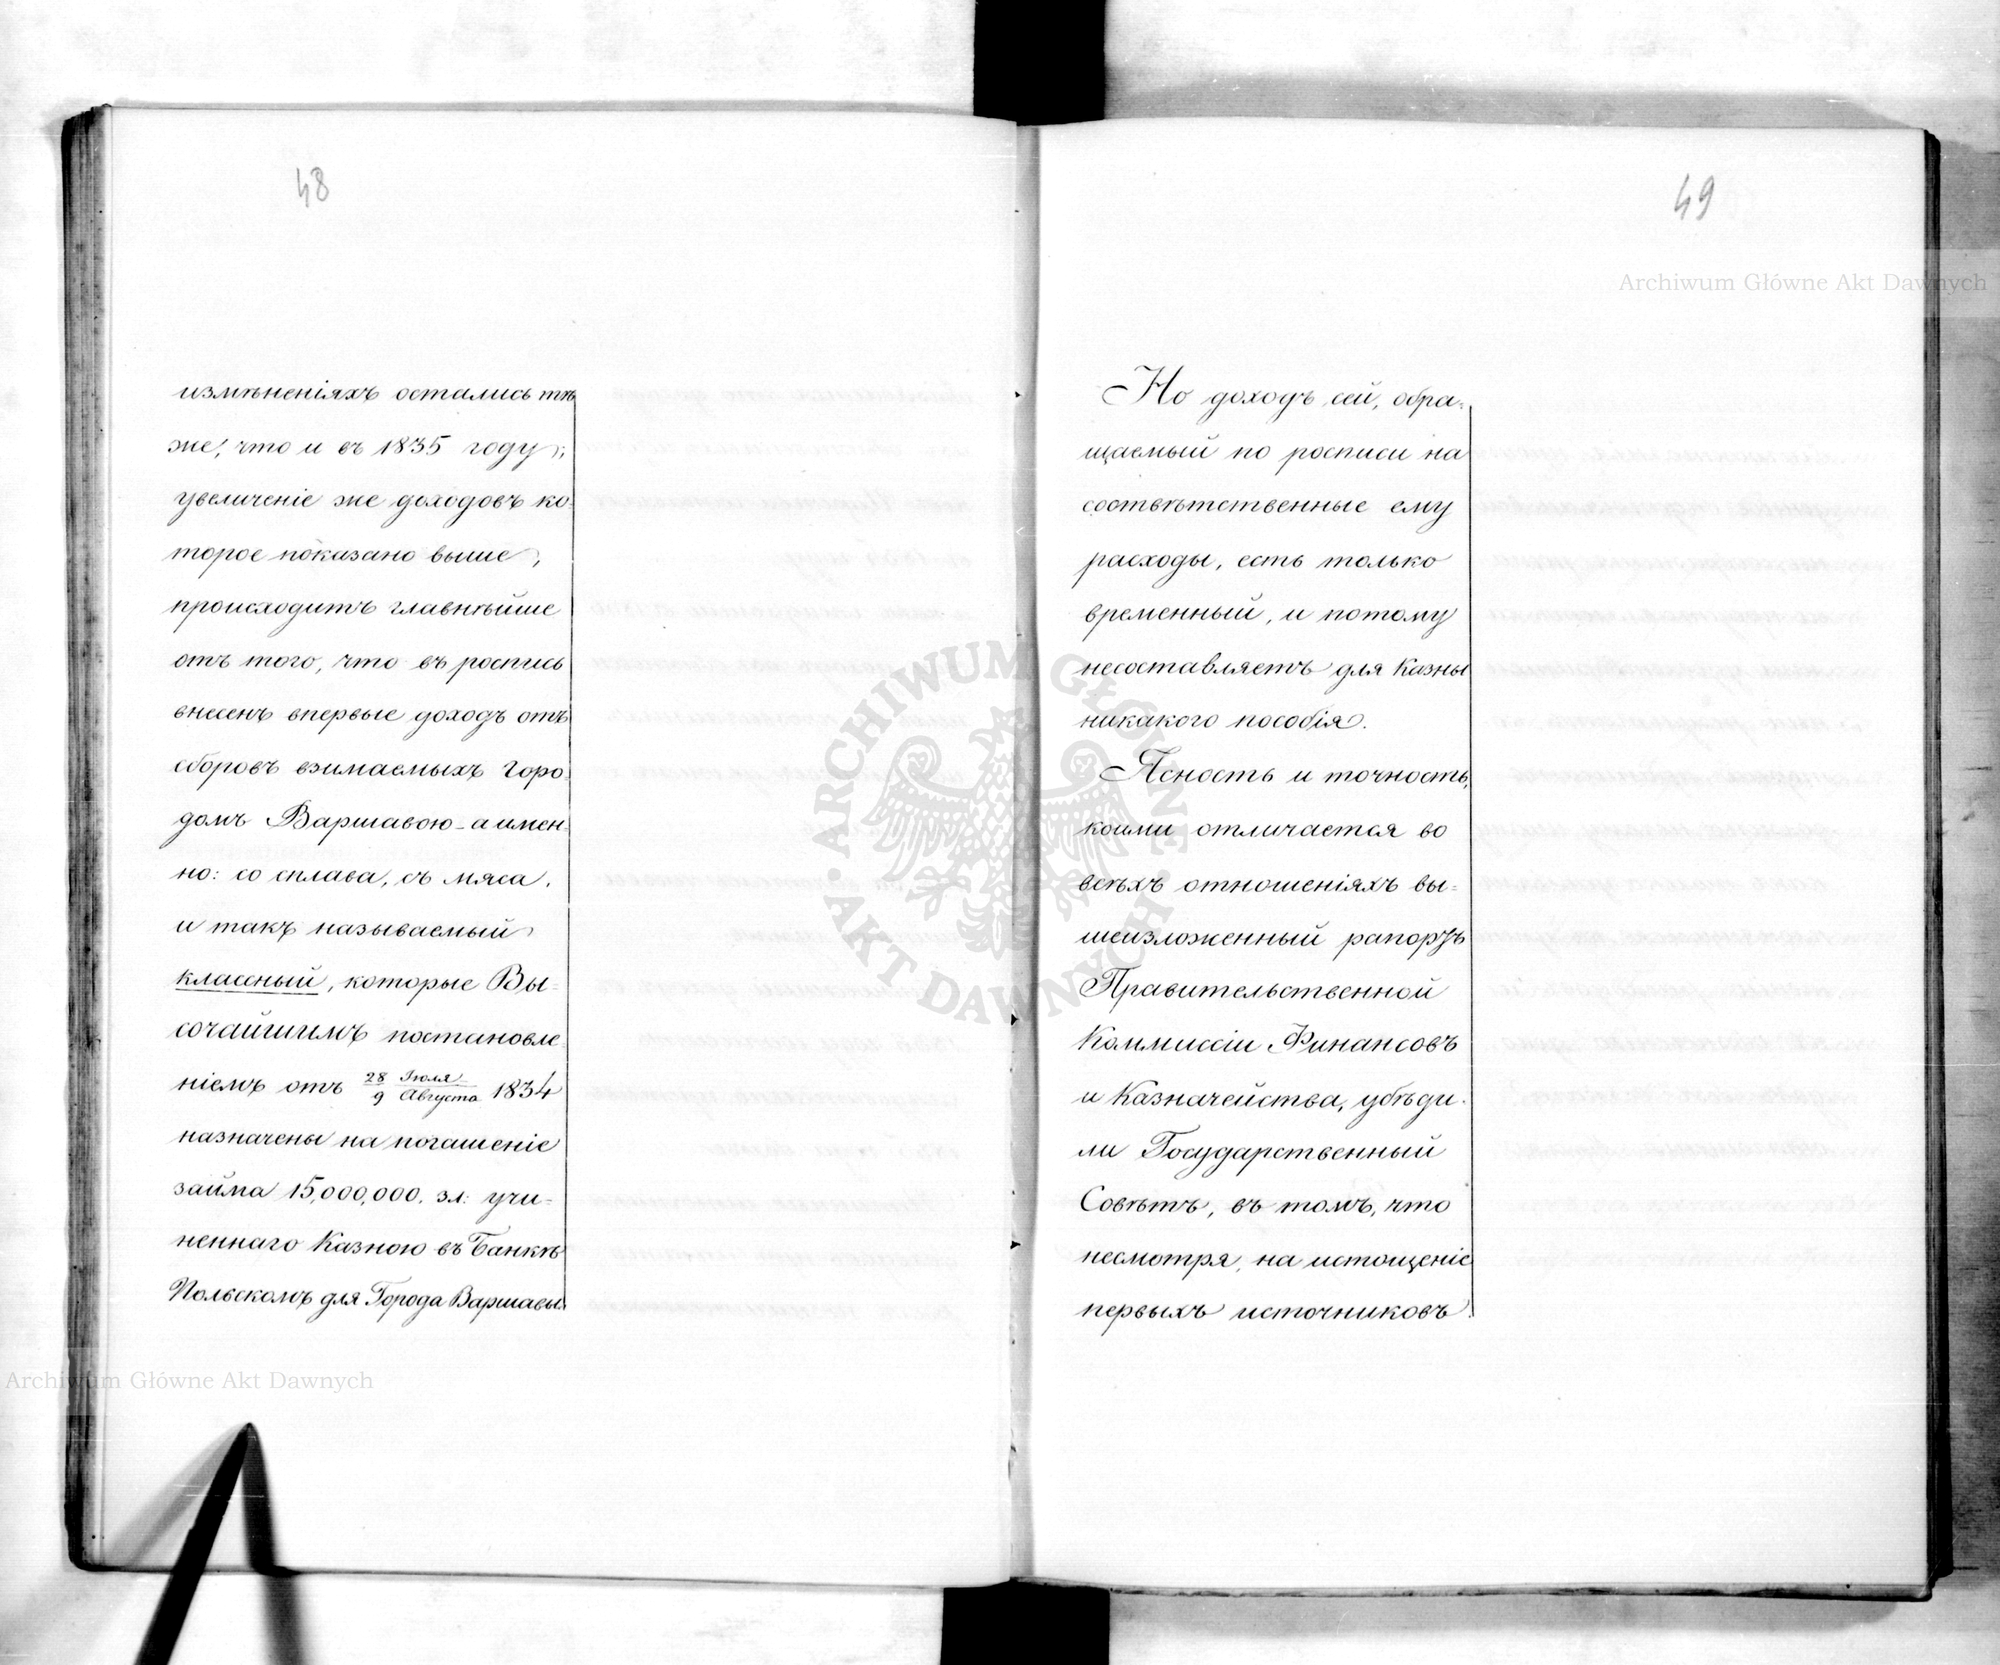 48
измѣненіяхъ остались тѣ
же, что и въ 1835 году;
увеличеніе же доходовъ ко-
торое показано выше,
происходитъ главнѣйше
отъ того, что въ роспись
внесенъ впервые доходъ отъ
сборовъ взимаемыхъ Горо-
домъ Варшавою - а имен-
но: со сплава, съ мяса,
и такъ называемый
классный, которые Вы-
сочайшимъ постановле-
ніемъ отъ 28 Іюля / 9 Августа 1834
назначены на погашеніе
займа 15,000,000. зл: учи-
неннаго Казною въ Банкѣ
Польскомъ для Города Варшавы.
49
Но доходъ сей, обра-
щаемый по росписи на
соотвѣтственные ему
расходы, есть только
временный, и потому
несоставляетъ для Казны
никакого пособія.
Ясность и точность,
коими отличается во
всѣхъ отношеніяхъ вы-
шеизложенный рапортъ
Правительственной
Коммиссіи Финансовъ
и Казначейства, убѣди-
ли Государственный
Совѣтъ, въ томъ, что
несмотря, на истощеніе
первыхъ источниковъ
Archiwum Główne Akt Dawnych
ARCHIWUM GŁÓWNE AKT DAWNYCH
Archiwum Główne Akt Dawnych